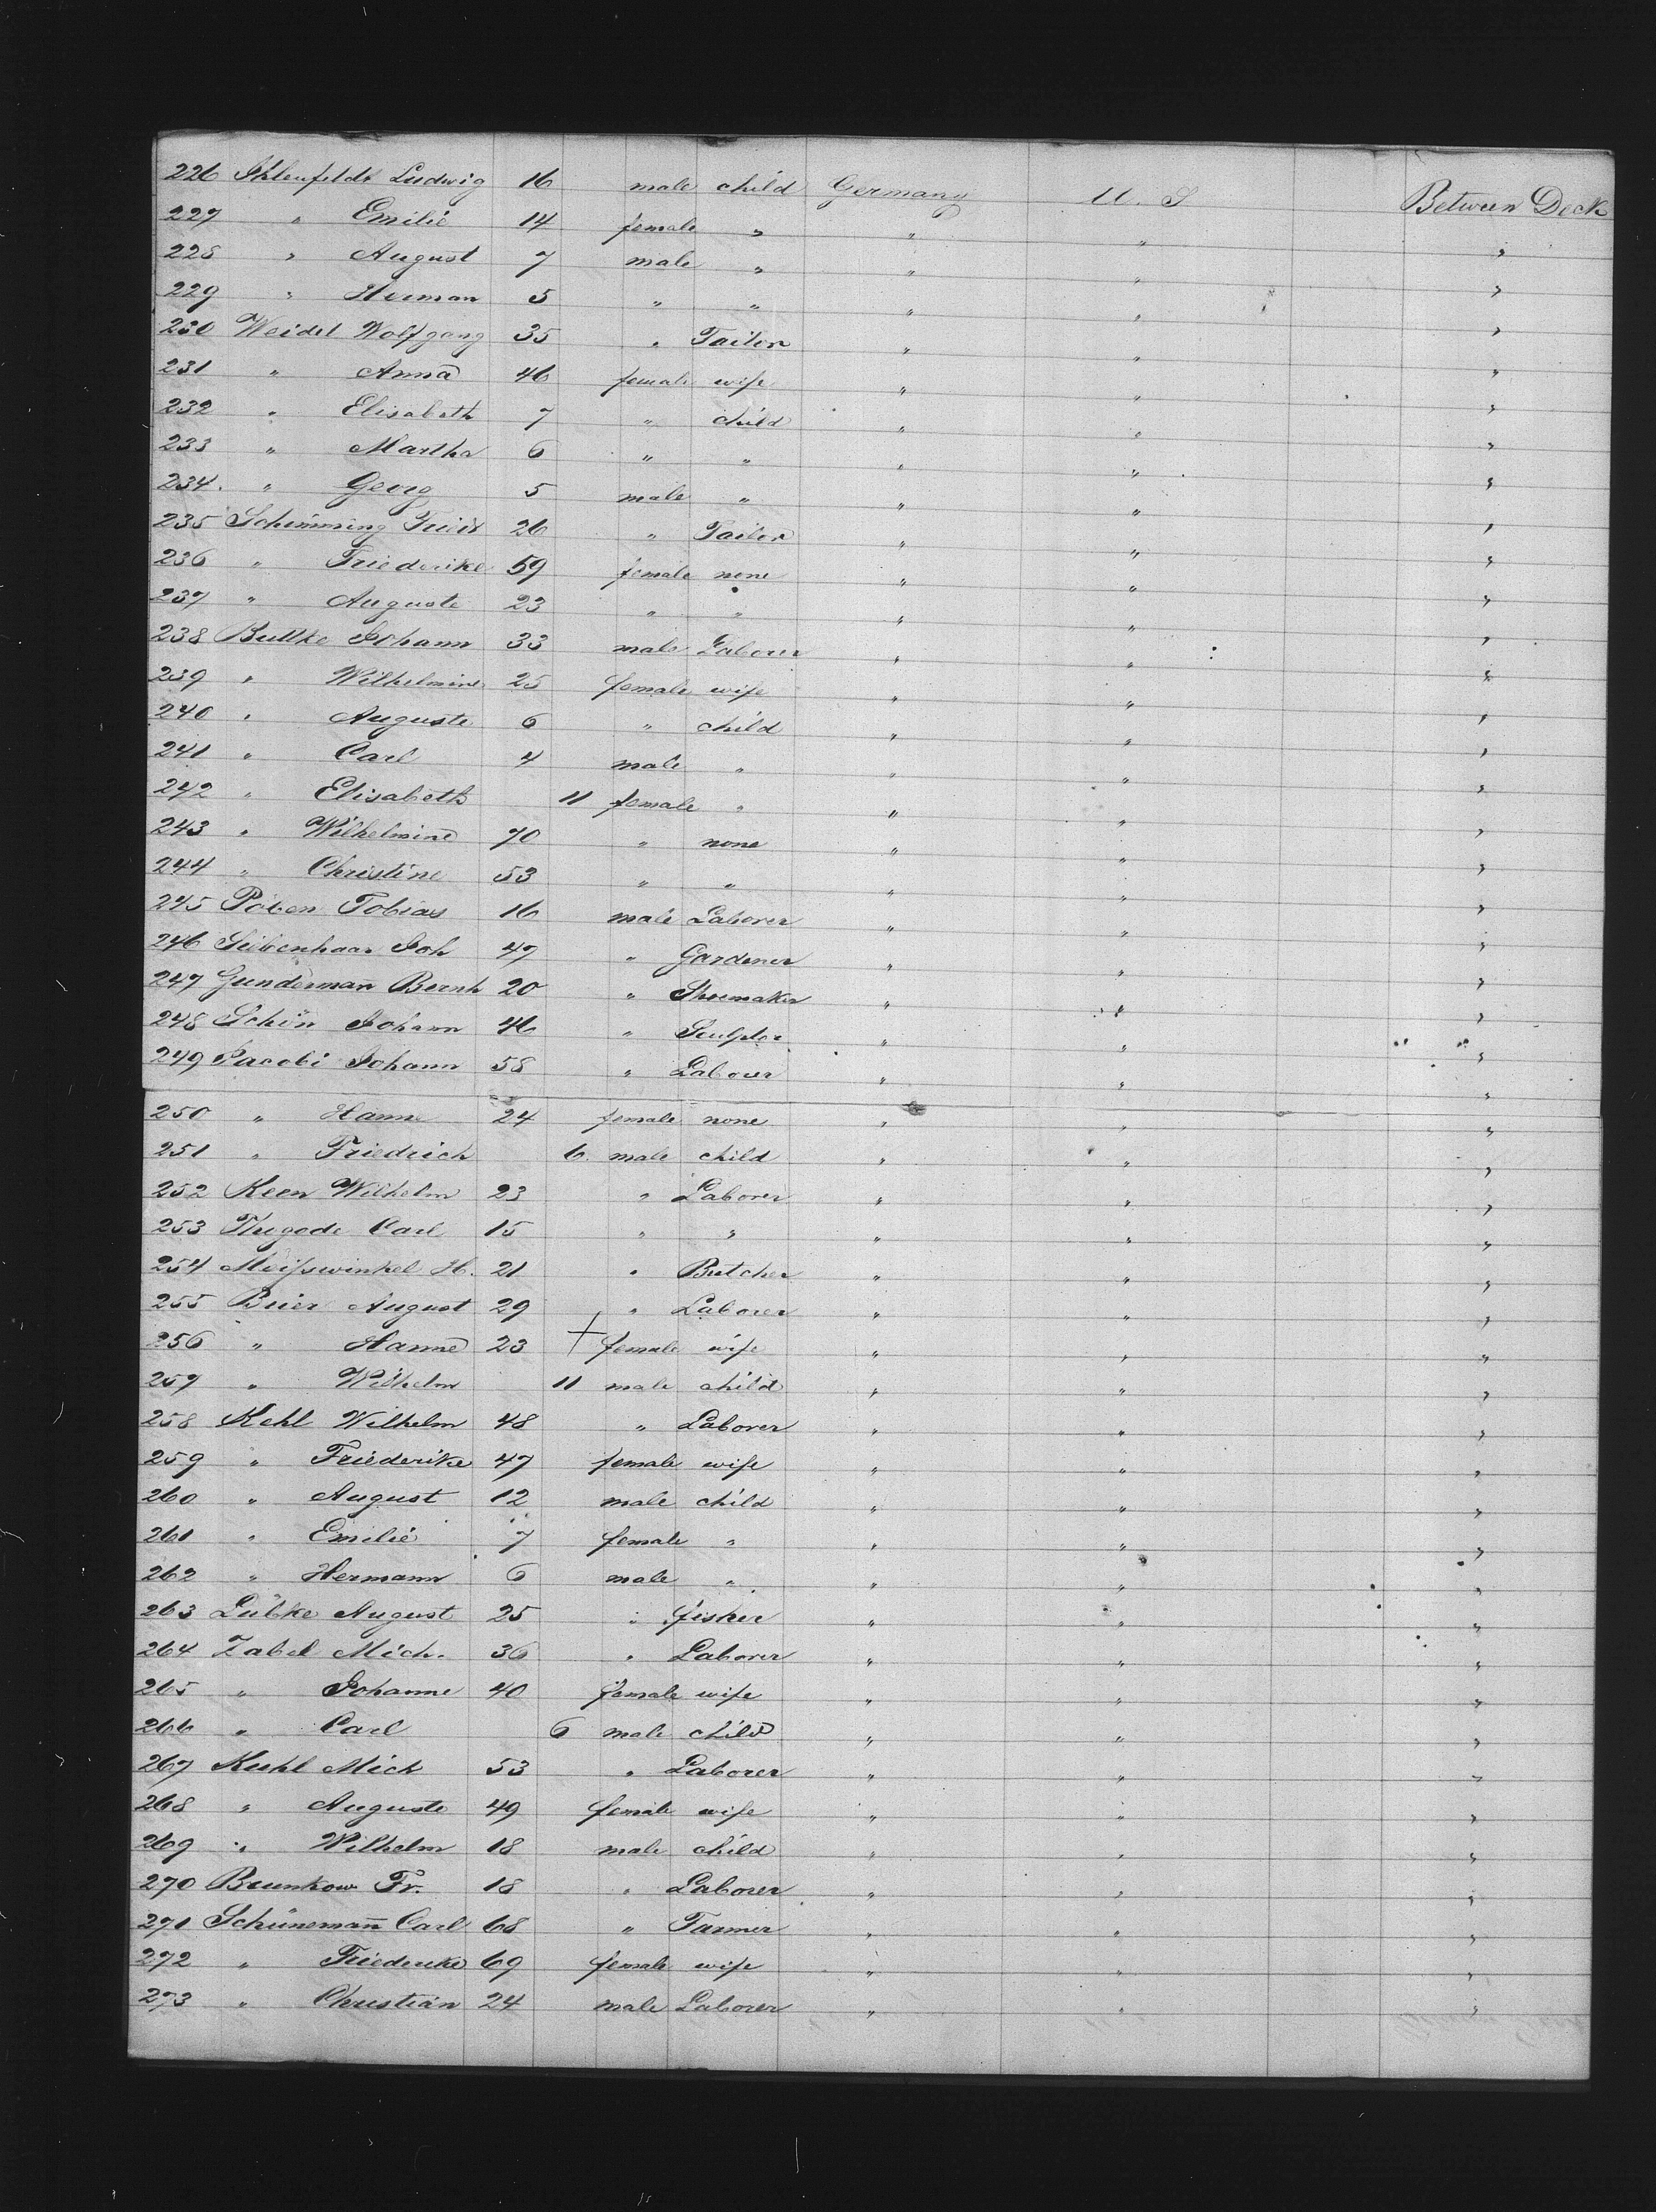 226 Ihlenfeldt Ludwig 16 male child Germany U. S Between Deck
227 " Emilie 14 female " " " "
228 " August 7 male " " " "
229 " Herman 5 " " " " "
230 Weidel Wolfgang 35 " Tailor " " "
231 " Anna 46 female wife " " "
232 " Elisabeth 7 " child " " "
233 " Martha 6 " " " " "
234. " Georg 5 male " " " "
235 Schimming 26 " Tailor " " "
236 " Friederike 59 female none " " "
237 " Auguste 23 " " " " "
238 Buttke Johann 33 male Laborer " " "
239 " Wilhelmine 25 female wife " " "
240 " Auguste 6 " child " " "
241 " Carl 4 male " " " "
242 " Elisabeth 11 female " " " "
243 " Wilhelmine 70 " none " " "
244 " Christine 53 " " " " "
245 Tobias 16 male Laborer " " "
246 Siebenhaar Joh 47 " Gardener " " "
247 Gundermañ Bernh 20 " Shoemaker " " "
248 Schön Johann 46 " Sculptor " " "
249 Jacobi Johann 58 " Laborer " " "
250 " Hanne 24 female none " " "
251 " Friedrich 6. male child " " "
252 Keen Wilhelm 23 " Laborer " " "
253 Thegode Carl 15 " " " " "
254 Meißwinkel H. 21 " Butcher " " "
255 Beier August 29 " Laborer " " "
256 " Hanne 23 + female wife " " "
257 " Wilhelm 11 male child " " "
258 Kehl Wilhelm 48 " Laborer " " "
259 " Friederike 47 female wife " " "
260 " August 12 male child " " "
261 " Emilie 7 female " " " "
262 " Hermann 6 male " " " "
263 Lübke August 25 " fisher " " "
264 Zabel Mich. 36 " Laborer " " "
265 " Johanne 40 female wife " " "
266 " Carl 6 male child " " "
267 Kuhl Mich 53 " Laborer " " "
268 " Auguste 49 female wife " " "
269 " Wilhelm 18 male child " " "
270 Brunkow Fr. 18 " Laborer " " "
271 Schünemañ Carl 68 " Farmer " " "
272 " Friederike 69 female wife " " "
273 " Christian 24 male Laborer " " "